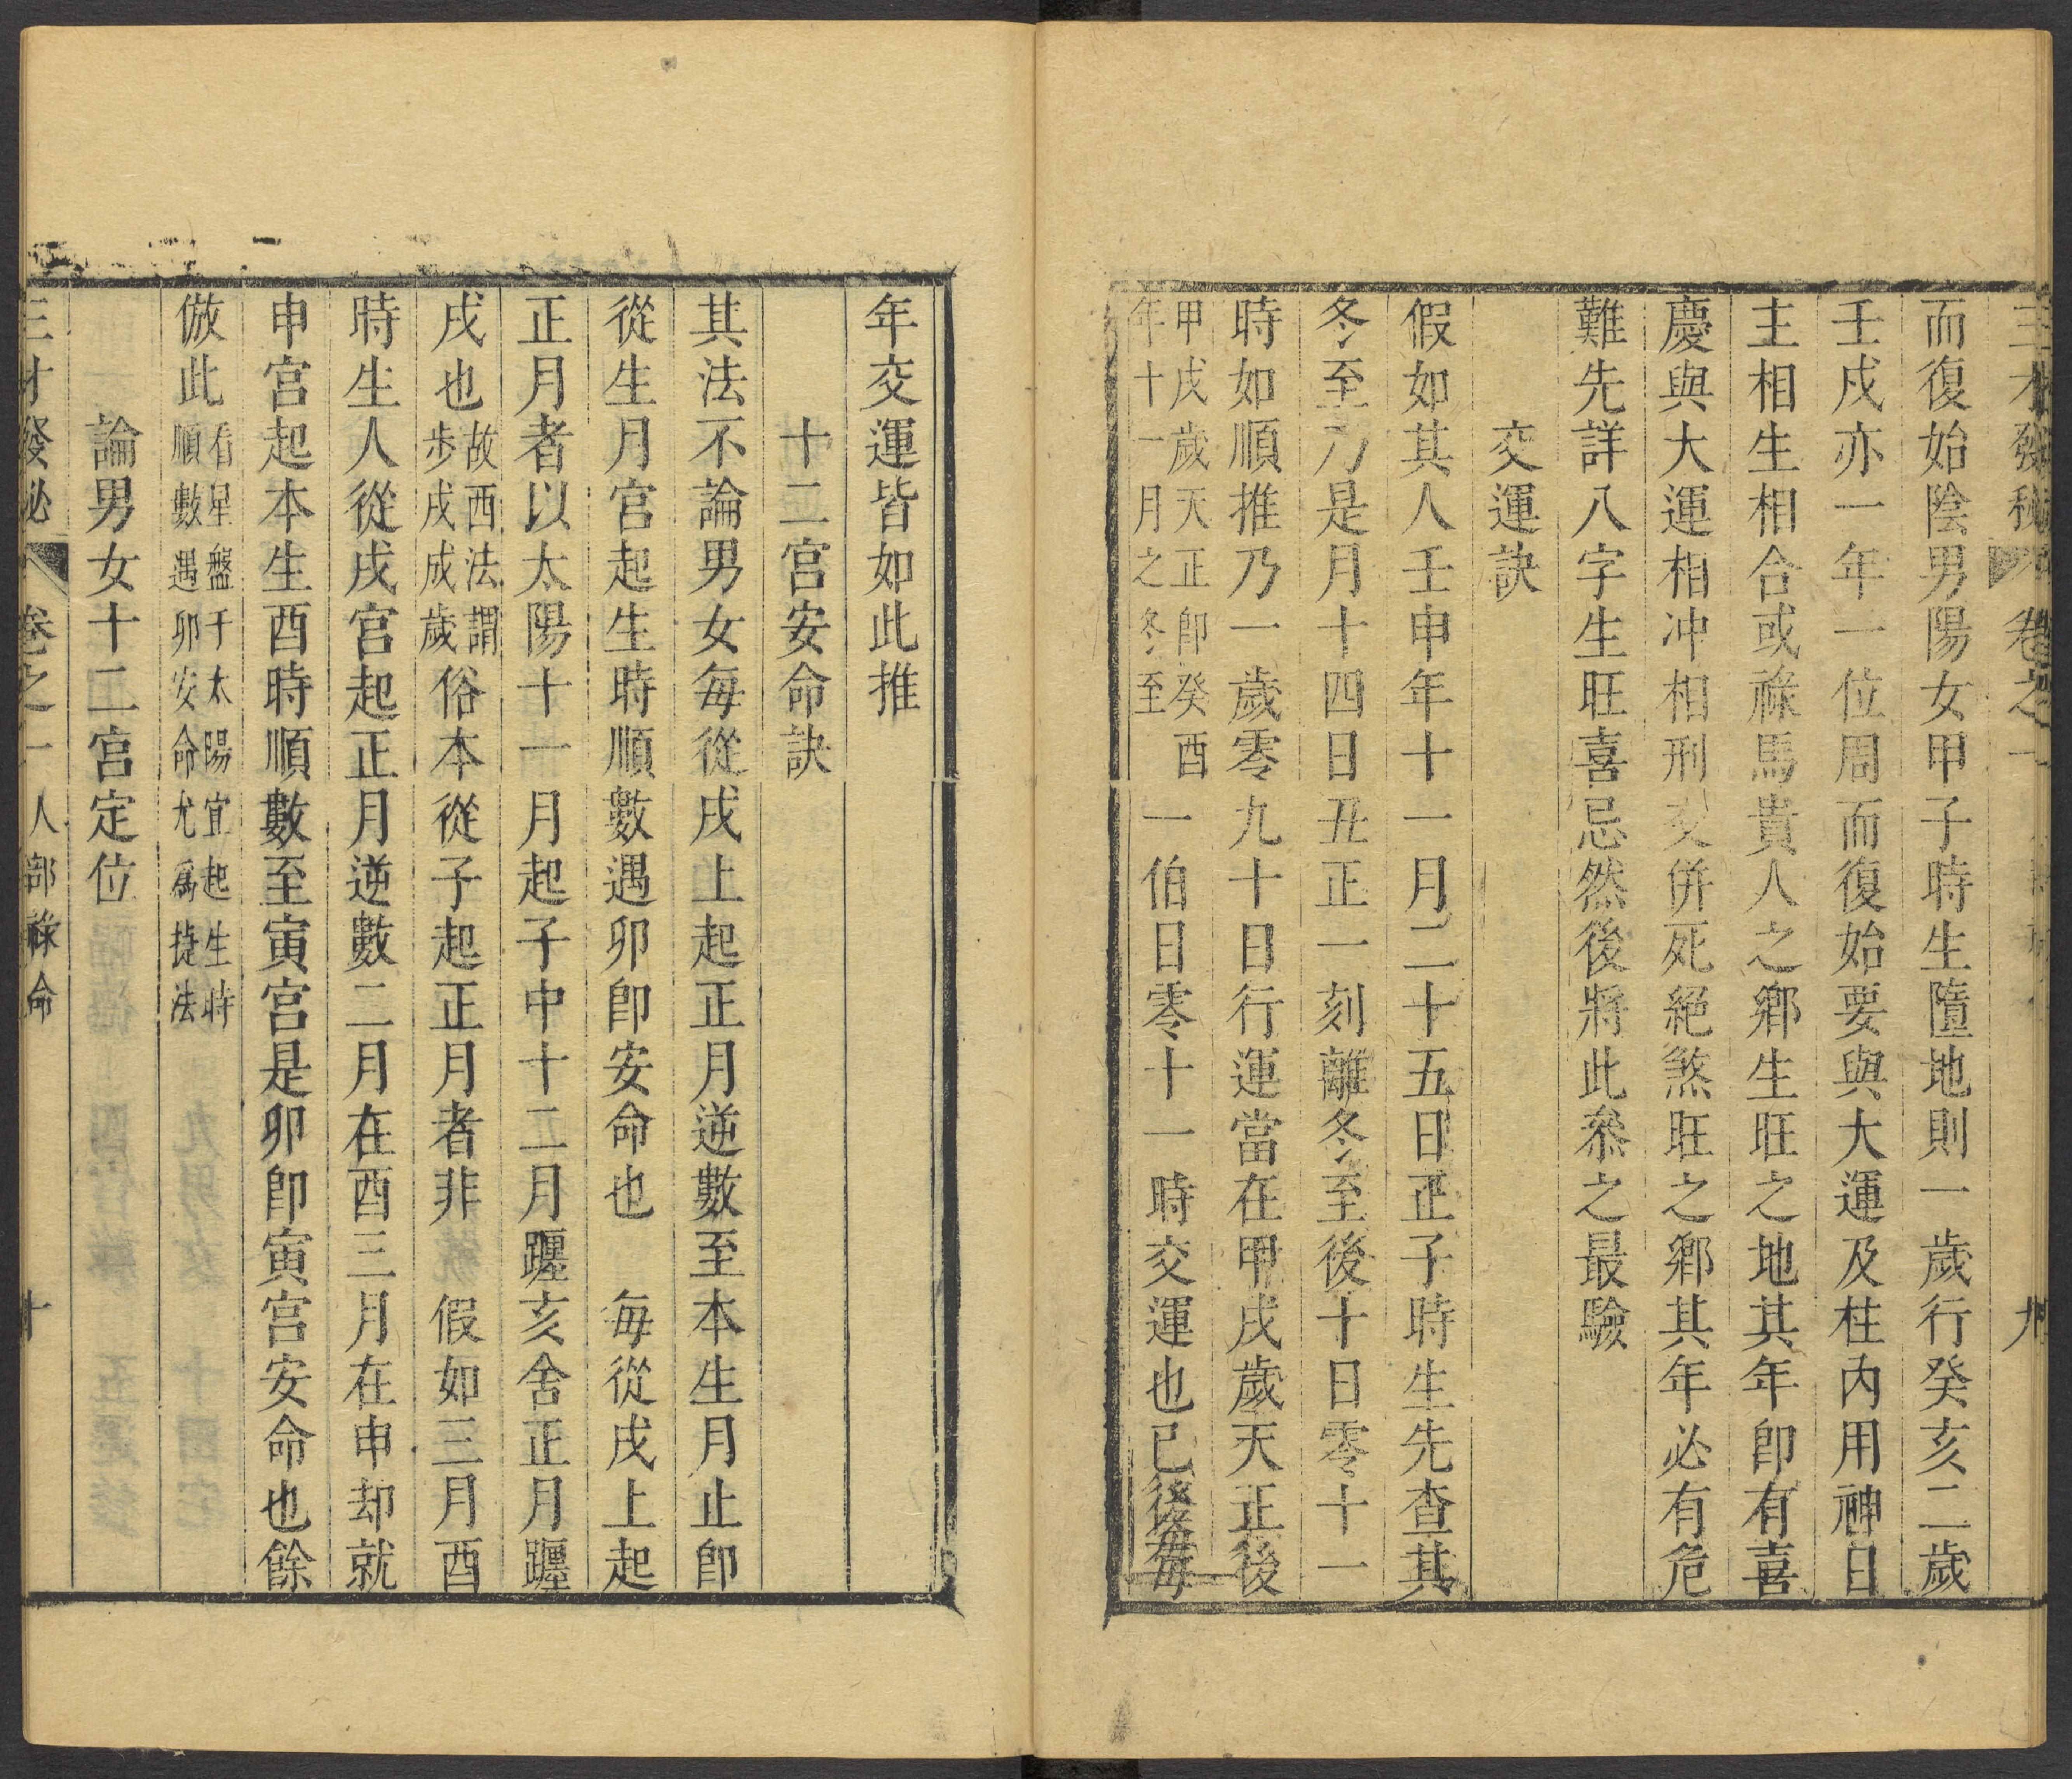 三才發秘 卷之一 九
而復始陰男陽女甲子時生墮地則一歲行癸亥二歲
壬戌亦一年一位周而復始要與大運及柱內用神日
主相生相合或祿馬貴人之鄉生旺之地其年卽有喜
慶與大運相冲相刑交併死絕煞旺之鄉其年必有危
難先詳八字生旺喜忌然後將此叅之最驗
交運訣
假如其人壬申年十一月二十五日正子時生先查其
冬至乃是月十四日丑正一刻離冬至後十日零十一
時如順推乃一歲零九十日行運當在甲戌歲天正後
甲戌歲天正卽癸酉
年十一月之冬至
一伯日零十一時交運也已後每
年交運皆如此推
十二宮安命訣
其法不論男女每從戌上起正月逆數至本生月止卽
從生月宮起生時順數遇卯卽安命也 每從戌上起
正月者以太陽十一月起子中十二月躔亥舍正月躔
戌也
故西法謂
步戌成歲
俗本從子起正月者非 假如三月酉
時生人從戌宮起正月逆數二月在酉三月在申却就
申宮起本生酉時順數至寅宮是卯卽寅宮安命也餘
倣此
看星盤于太陽宜起生時
順數遇卯安命尤爲捷法
論男女十二宮定位
三才發祕 卷之一 人部祿命 十